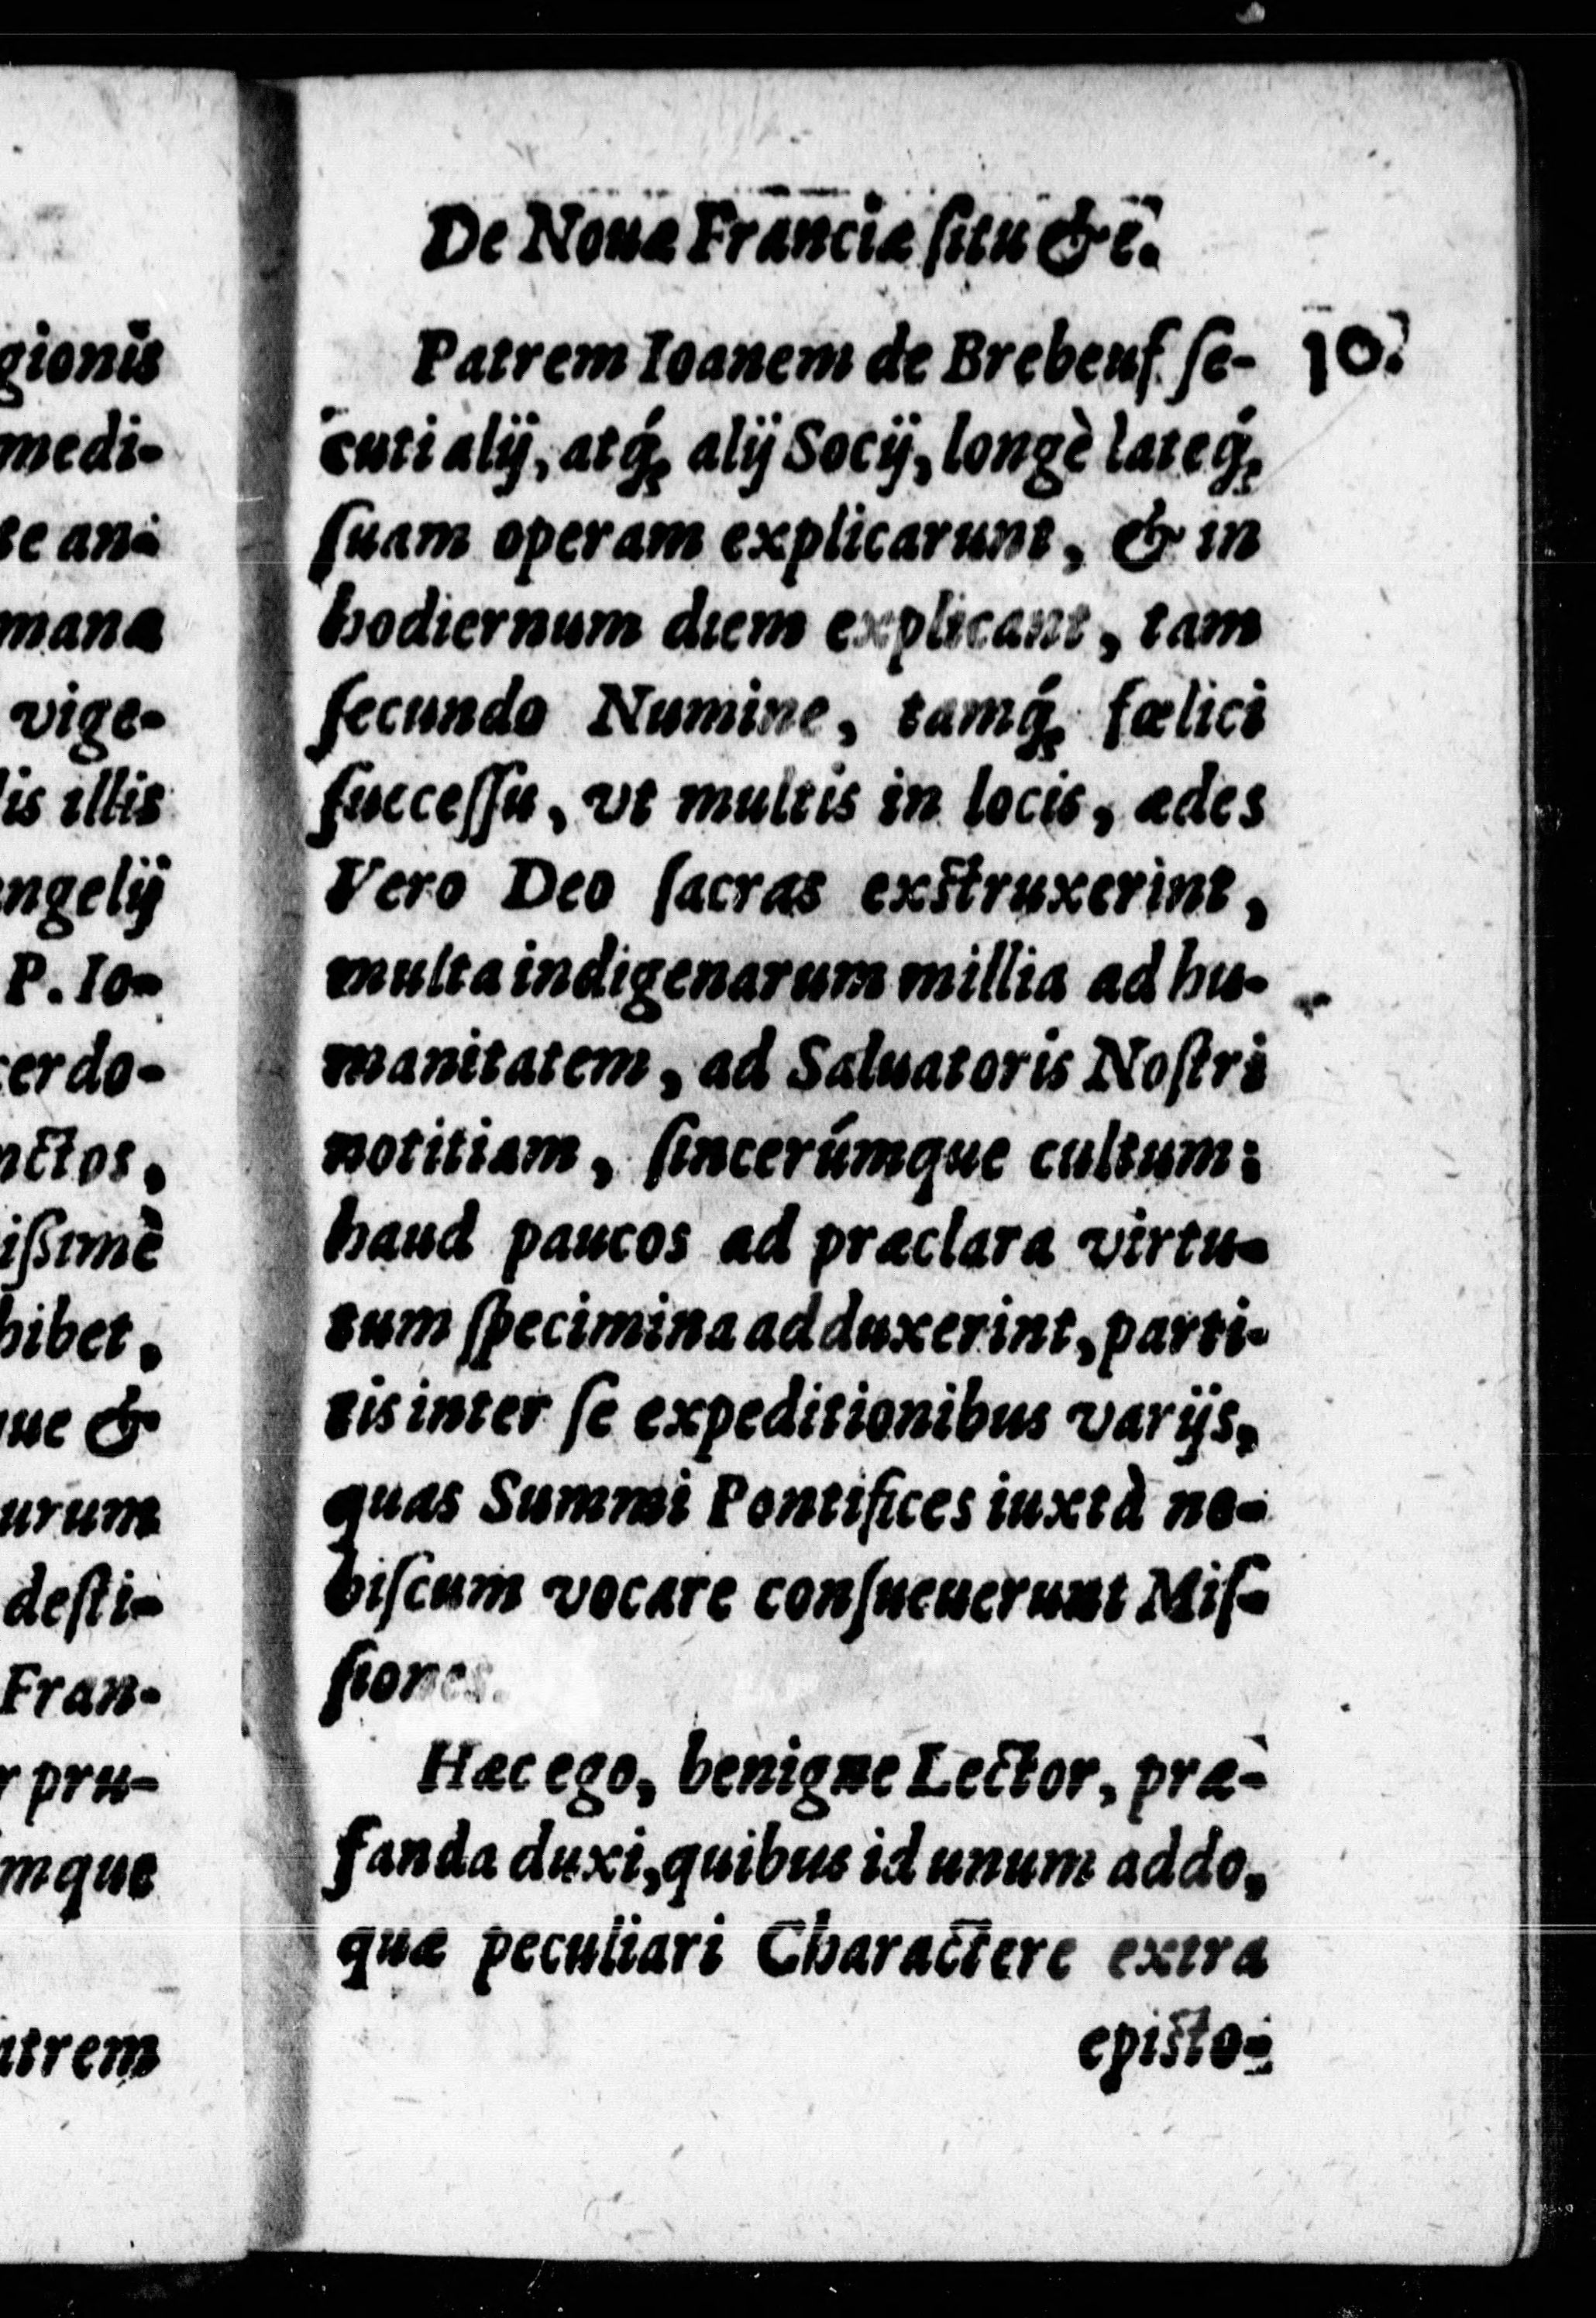 gionis
medi-
te ani
mana
vige-
lis illis
ngelij
P. Io-
cerdo-
nctos,
issimè
hibet,
que &
urum
desti-
Fran-
r pru-
mque
atrem
De Nouæ Franciæ ſitu &c.
10.
Patrem Ioanem de Brebeuf ſe-
cuti alij, atq́; alij Socij, longè lateq́;
ſuam operam explicarunt, & in
hodiernum diem explicant, tam
ſecundo Numine, tamq́; fœlici
ſucceſſu, vt multis in locis, ædes
Vero Deo ſacras exſtruxerint,
multa indigenarum millia ad hu-
manitatem, ad Saluatoris Noſtri
notitiam, ſincerúmque cultum:
haud paucos ad præclara virtu-
tum ſpecimina adduxerint, parti-
tis inter ſe expeditionibus varijs,
quas Summi Pontifices iuxtà no-
biſcum vocare conſueuerunt Miſ-
ſiones.
Hæc ego, benigne Lector, præ-
fanda duxi, quibus id unum addo,
quæ peculiari Charactere extra
epiſto-